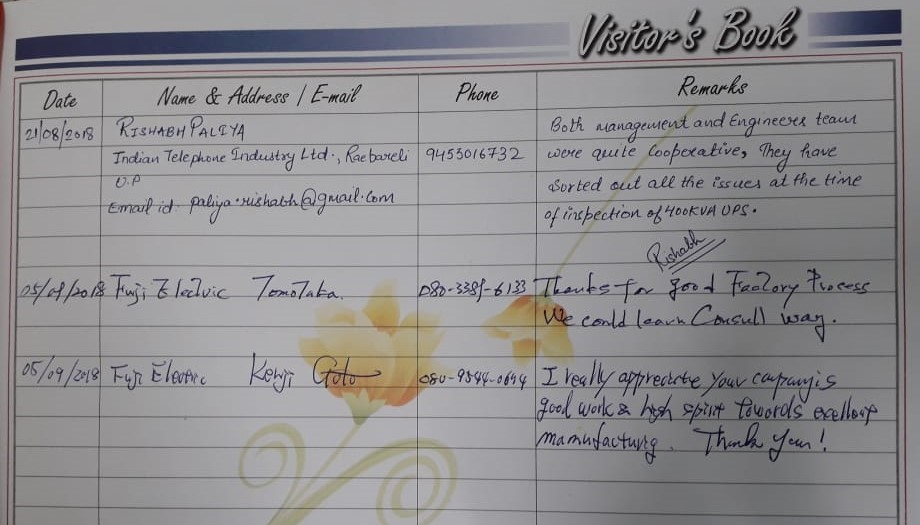 Visitor's Book
Date Name & Address / E-mail Phone Remarks
21/08/2018 RISHABH PALIYA Both management and Engineers team
Indian Telephone Industry Ltd., Raebareli 9455016732 were quite Cooperative, They have
U.P Sorted out all the issues at the time
Email id: paliya.rishabh@gmail.com of inspection of 400KVA UPS.
Rishabh
05/09/2018 Fuji Electric Tomotaka Thanks for good Factory Process
We could learn Consull way.
05/09/2018 Fuji Electric Kenji Goto I really appreciate your company's
good work & high spirit towards excellent
manufacturing. Thank you!